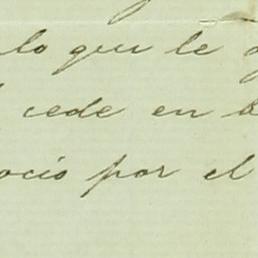 lo que le
cede en
ocio por el